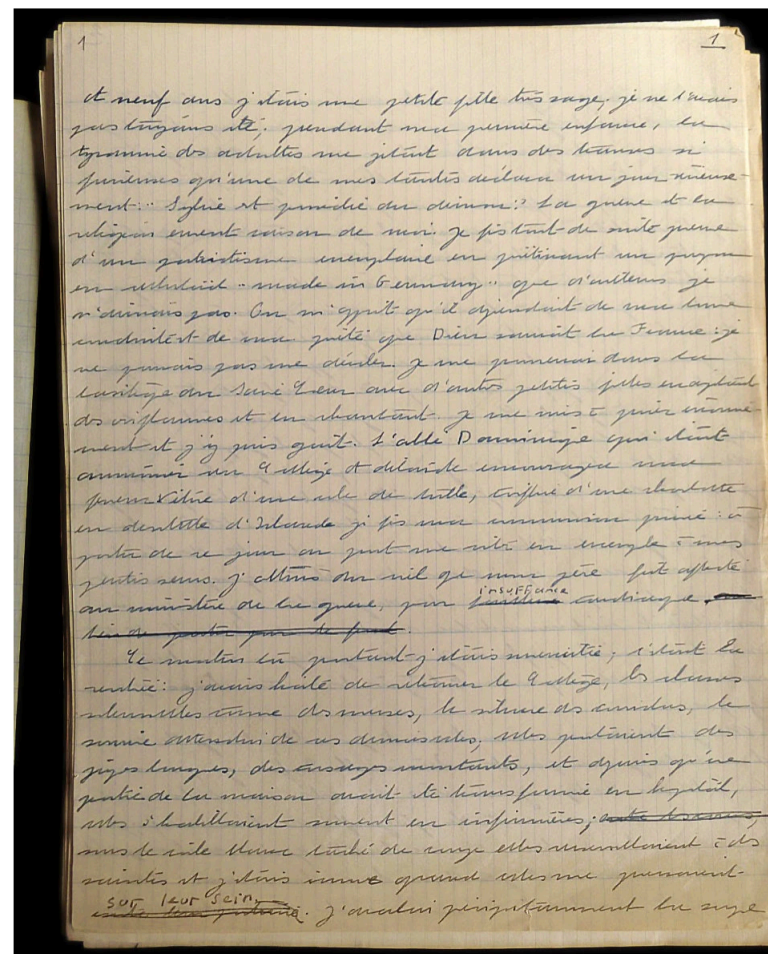 1 1
A neuf ans j'étais une petite fille très sage ; je ne l'avais
pas toujours été ; pendant ma première enfance, la
tyrannie des adultes me jetait dans des transes si
furieuses qu'une de mes tantes déclara un jour sérieuse-
ment : "Sylvie est possédée du démon". La guerre et la
religion eurent raison de moi. Je fis tout de suite preuve
d'un patriotisme exemplaire en piétinant un poupon
en celluloïd "made in Germany" que d'ailleurs je
n'aimais pas. On m'apprit qu'il dépendait de ma bonne
conduite et de ma piété que Dieu sauvât la France : je
ne pouvais pas me dérober. Je me promenai dans la
basilique du Sacré Coeur avec d'autres petites filles en agitant
des oriflammes et en chantant. Je me mis à prier énormé-
ment et j'y pris goût. L'abbé Dominique qui était
aumônier au Collège Adélaïde encouragea ma
ferveur. Vêtue d'une robe de tulle, coiffée d'une charlotte
en dentelle d'Irlande je fis ma communion privée : à
partir de ce jour on put me citer en exemple à mes
petites soeurs. J'obtins du ciel que mon père fût affecté
au ministère de la guerre, pour insuffisance cardiaque.
Ce matin là pourtant j'étais surexcitée ; c'était la
rentrée : j'avais hâte de retrouver le Collège, les classes
solennelles comme des messes, le silence des couloirs, le
sourire attendri de ces demoiselles ; elles portaient des
jupes longues, des corsages montants, et depuis qu'une
partie de la maison avait été transformée en hôpital,
elles s'habillaient souvent en infirmières ;
sous le voile blanc taché de rouge elles ressemblaient à des
saintes et j'étais émue quand elles me pressaient
sur leur sein. J'avalai précipitamment la soupe